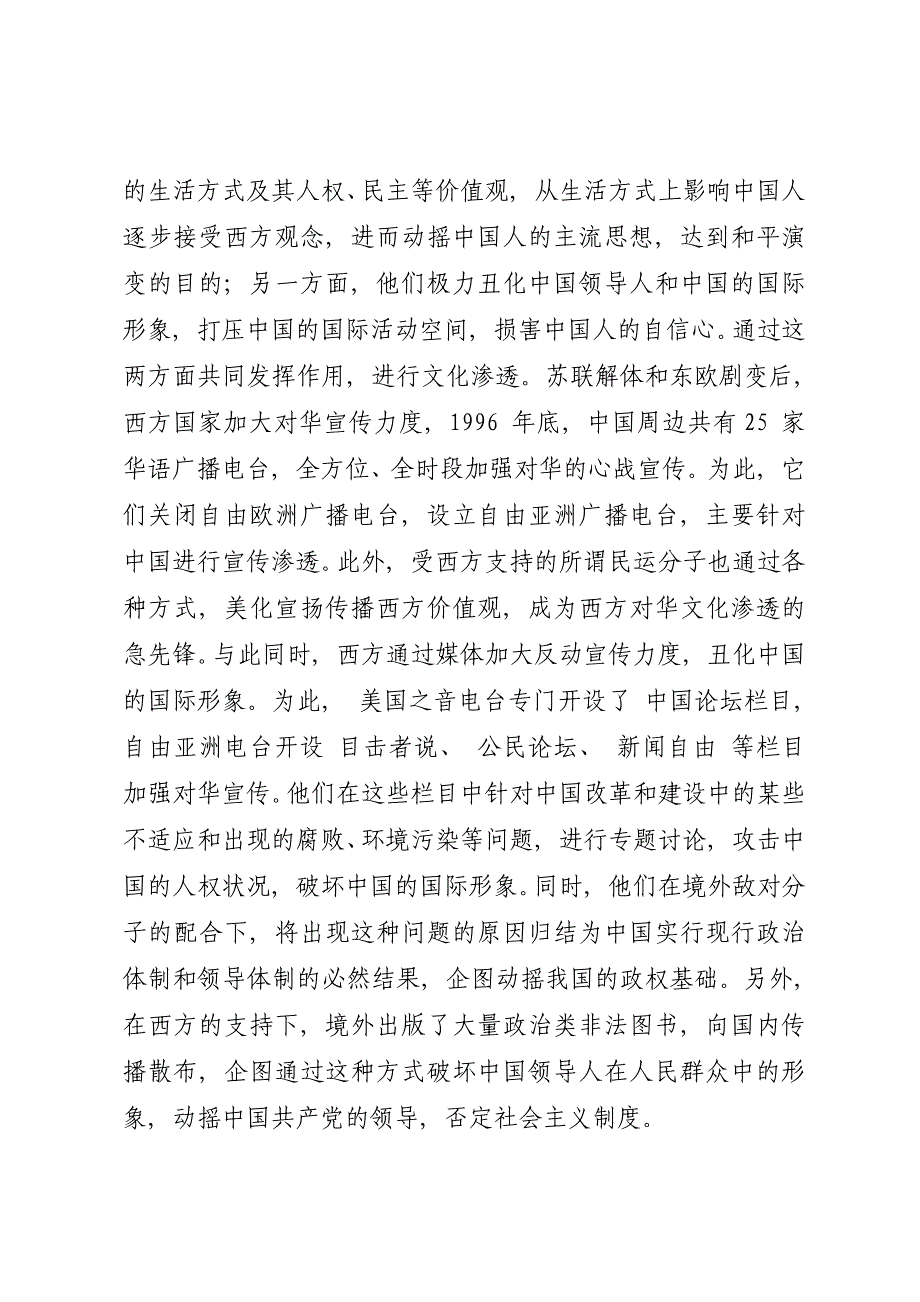 的生活方式及其人权、民主等价值观，从生活方式上影响中国人
逐步接受西方观念，进而动摇中国人的主流思想，达到和平演
变的目的；另一方面，他们极力丑化中国领导人和中国的国际
形象，打压中国的国际活动空间，损害中国人的自信心。通过这
两方面共同发挥作用，进行文化渗透。苏联解体和东欧剧变后，
西方国家加大对华宣传力度，1996 年底，中国周边共有 25 家
华语广播电台，全方位、全时段加强对华的心战宣传。为此，它
们关闭自由欧洲广播电台，设立自由亚洲广播电台，主要针对
中国进行宣传渗透。此外，受西方支持的所谓民运分子也通过各
种方式，美化宣扬传播西方价值观，成为西方对华文化渗透的
急先锋。与此同时，西方通过媒体加大反动宣传力度，丑化中国
的国际形象。为此， 美国之音电台专门开设了 中国论坛栏目，
自由亚洲电台开设 目击者说、 公民论坛、 新闻自由 等栏目
加强对华宣传。他们在这些栏目中针对中国改革和建设中的某些
不适应和出现的腐败、环境污染等问题，进行专题讨论，攻击中
国的人权状况，破坏中国的国际形象。同时，他们在境外敌对分
子的配合下，将出现这种问题的原因归结为中国实行现行政治
体制和领导体制的必然结果，企图动摇我国的政权基础。另外，
在西方的支持下，境外出版了大量政治类非法图书，向国内传
播散布，企图通过这种方式破坏中国领导人在人民群众中的形
象，动摇中国共产党的领导，否定社会主义制度。